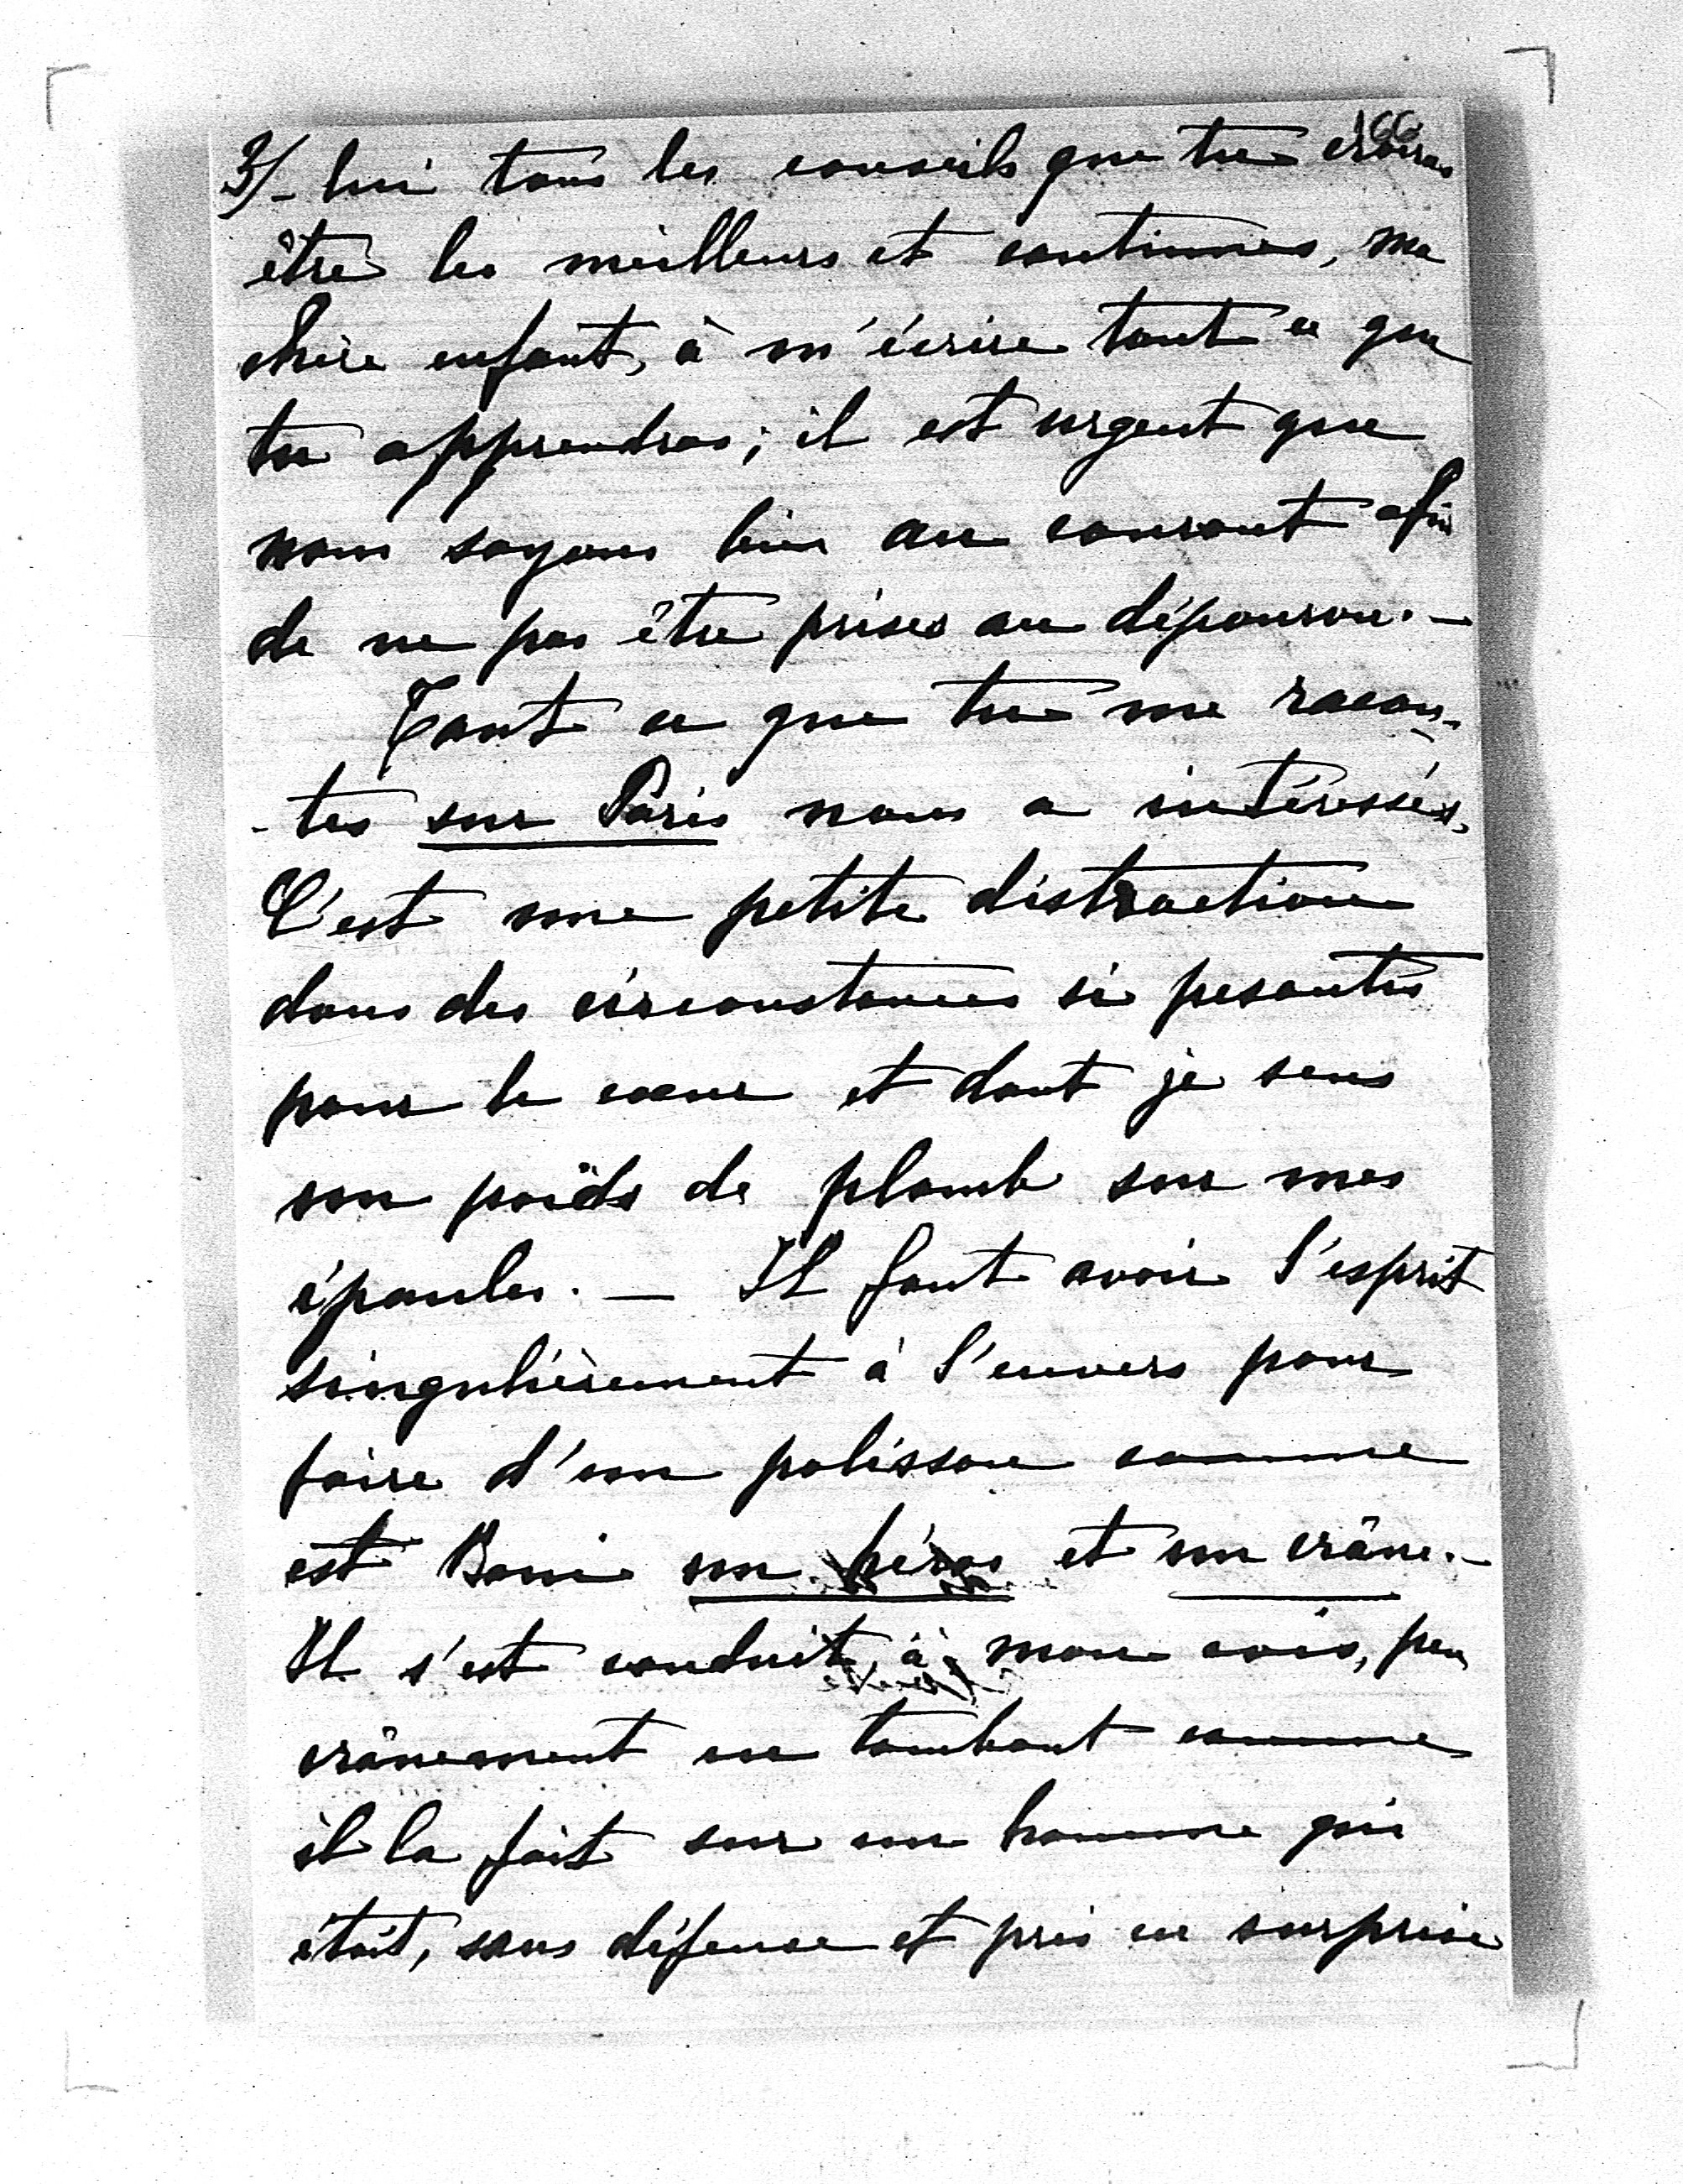 166
3/- lui tous les conseils que tu croiras
être les meilleurs et continues, ma
chère enfant, à m'écrire tout ce que
tu apprendras; il est urgent que
nous soyons bien au courant afin
de ne pas être prises au dépourvu. -
Tout ce que tu me racon-
-tes sur Paris nous a intéressés.
C'est une petite distraction
dans des circonstances si pesantes
pour le cœur et dont je sens
son poids de plomb sur mes
épaules. - Il faut avoir l'esprit
singulièrement à l'envers pour
faire d'un polisson comme
est Boni un héros et un crâne. -
Il s'est conduit, à mon avis, peu
crânement en tombant comme
il la fait sur un homme qui
était, sans défense et pris en surprise